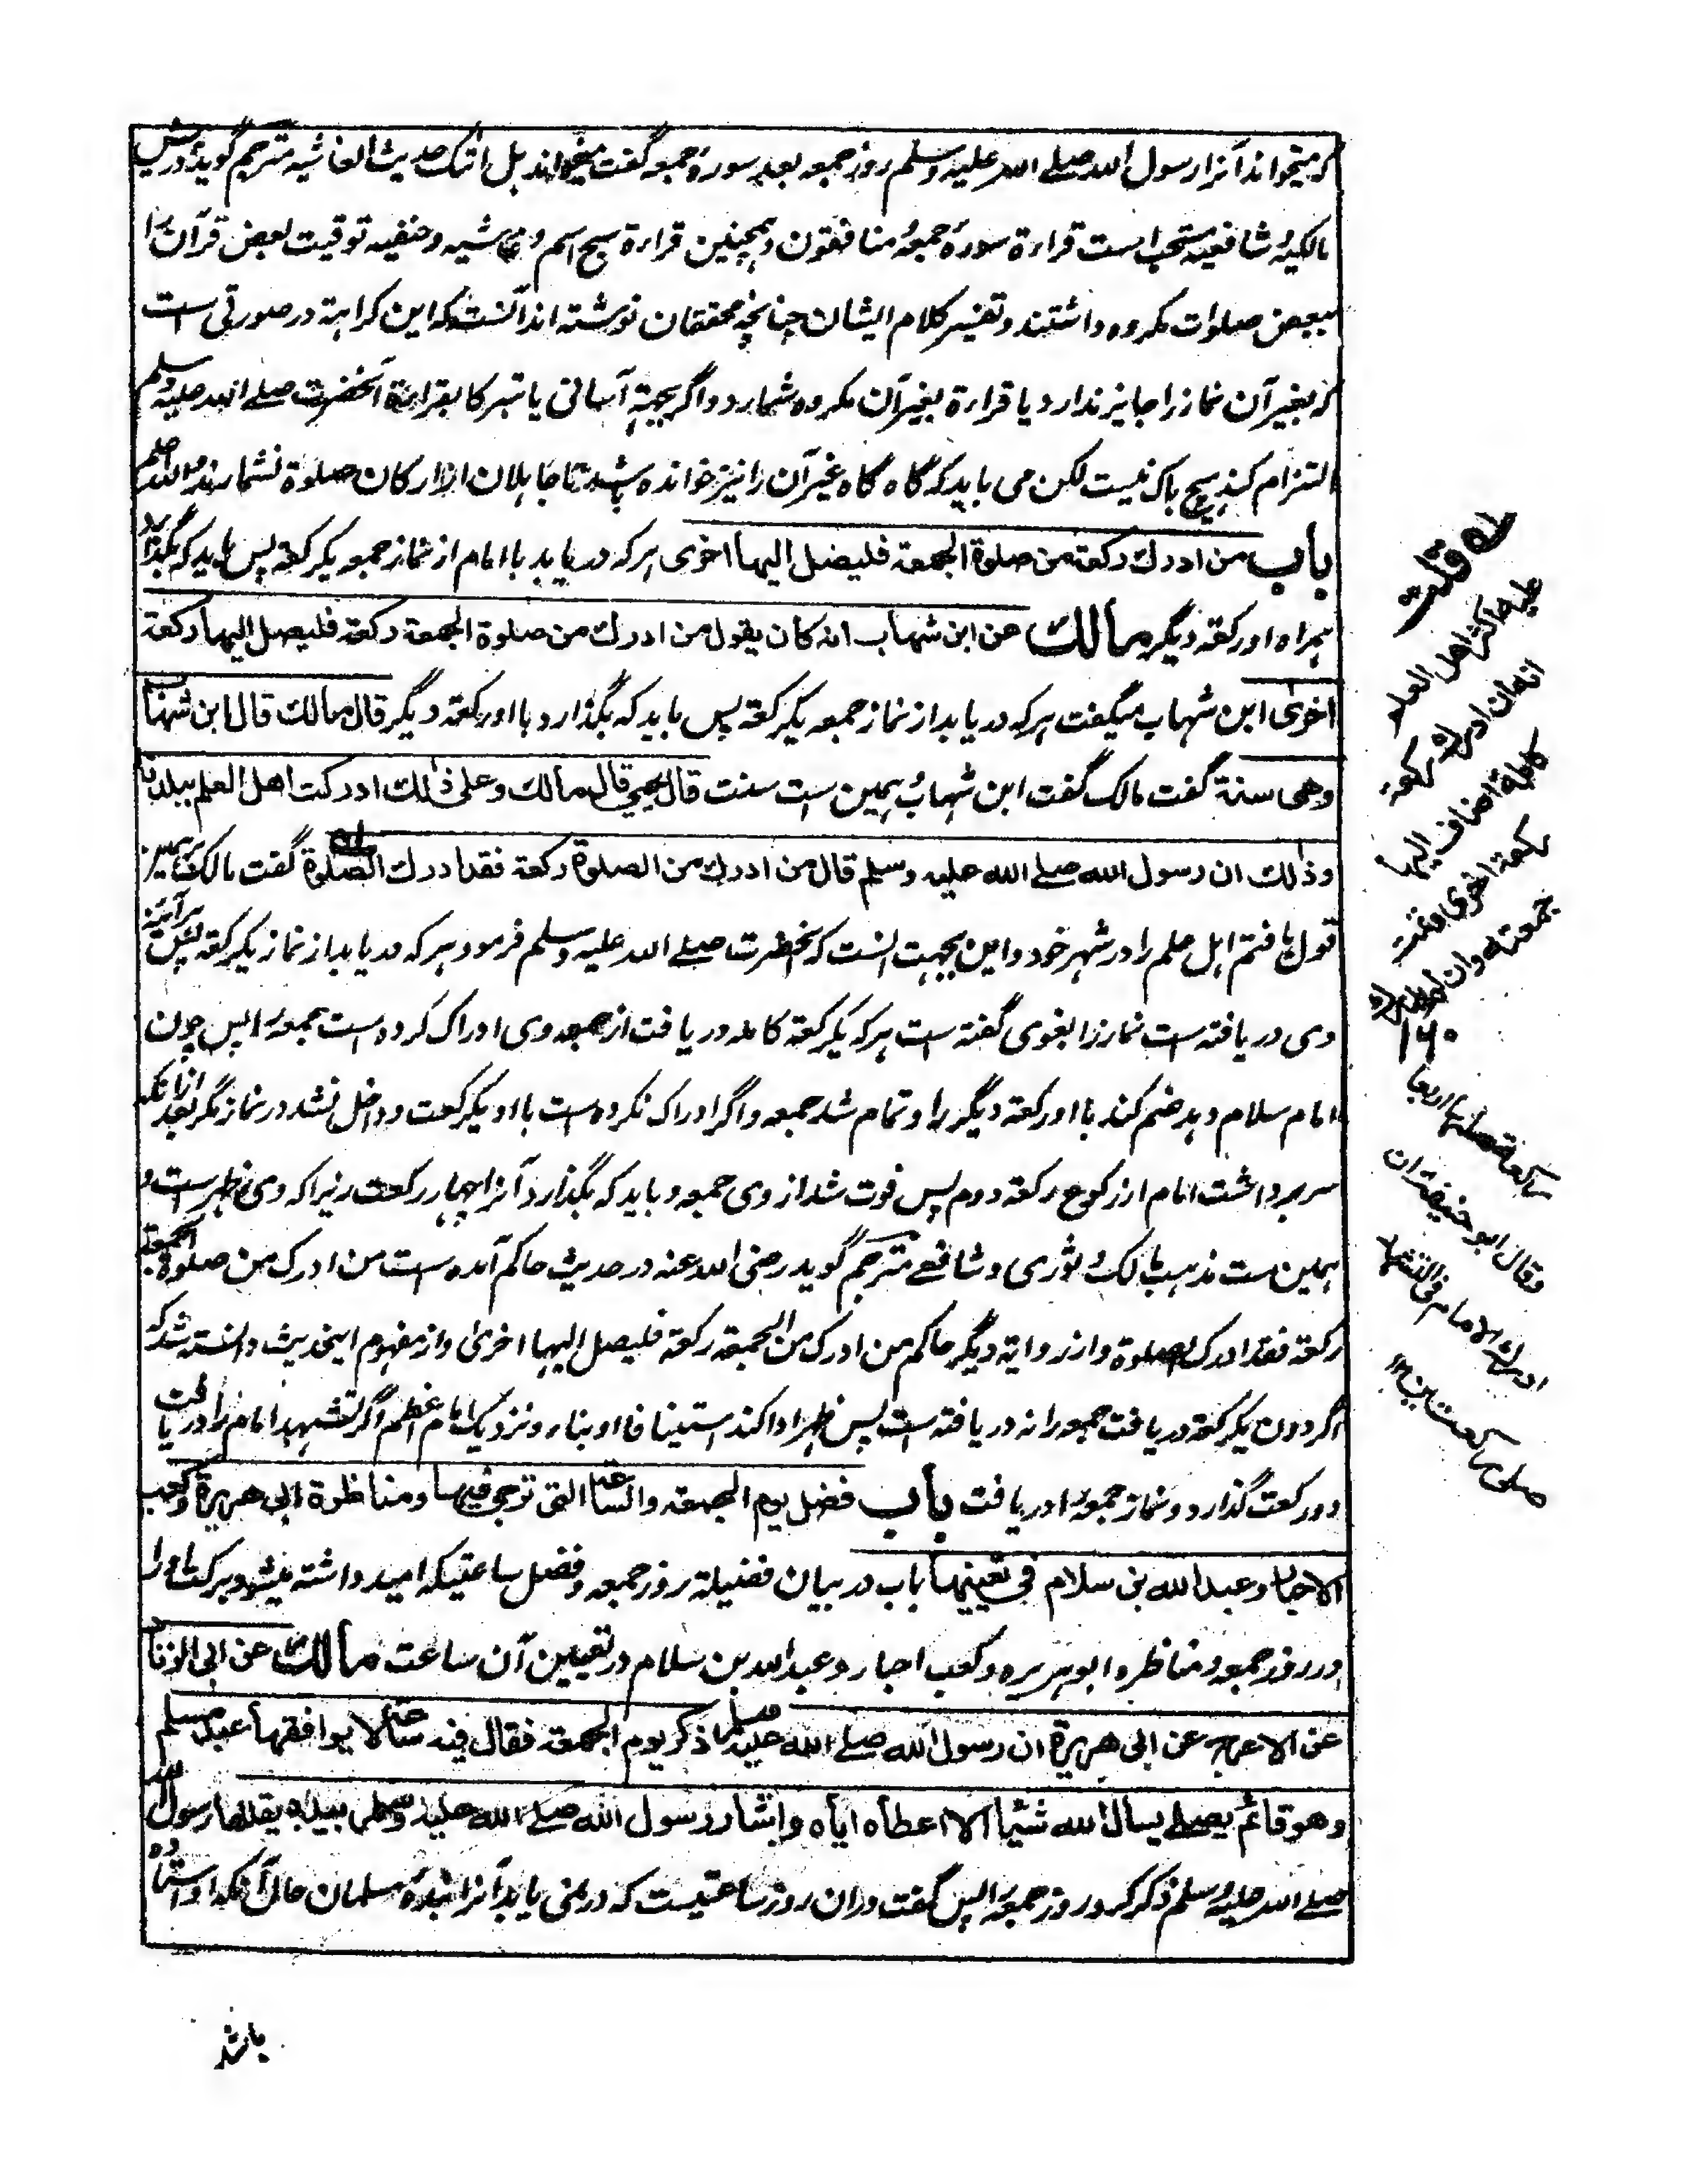 که میخواند آنرا رسول الله صلے الله علیه وسلم روز جمعه بعد سورهٔ جمعه گفت میخواند هل اتٰک حدیث الغاشیه مترجم گوید در پیش
مالکیه و شافعیه مستحب است قراءة سورهٔ جمعه و منافقون و همچنین قراءة سبح اسم و غاشیه و حنفیه توقیت بعض قرآن را
ببعض صلوات مکروه داشتند و تفسیر کلام ایشان چنانچه محققان نوشته اند آنست که این کراهة در صورتی است
که بغیر آن نماز را جایز ندارد یا قراءة بغیر آن مکروه شمارد و اگر بجهة آسانی یا تبرکا بقراءة آنحضرت صلے الله علیه وسلم
التزام کند هیچ باک نیست لکن می باید که گاه گاه غیر آن را نیز خوانده باشد تا جاهلان از ارکان صلوة نشمارند والله اعلم
باب من ادرك ركعة من صلوة الجمعة فليصل اليها اخرى هر که دریابد با امام از نماز جمعه یکرکعة پس باید که بگذارد
همراه او رکعة دیگر مالك عن ابن شهاب انه كان يقول من ادرك من صلوة الجمعة ركعة فليصل اليها ركعة
اخرى ابن شهاب میگفت هر که دریابد از نماز جمعه یکرکعة پس باید که بگذارد با او رکعة دیگر قال مالك قال ابن شهاب
وهى سنة گفت مالک گفت ابن شهاب و همین است سنت قال يحيى قال مالك وعلى ذلك ادركت اهل العلم ببلدنا
وذلك ان رسول الله صلے الله عليه وسلم قال من ادرك من الصلوة ركعة فقد ادرك الصلوة گفت مالک بر همین
قول یافتم اهل علم را در شهر خود و این بجهت آنست که آنحضرت صلے الله علیه وسلم فرمود هر که دریابد از نماز یکرکعة پس هرآئینه
وی دریافته است نماز را بغوی گفته است هر که یکرکعة کامله دریافت از جمعه وی ادراک کرده است جمعه را پس چون
امام سلام دهد ضم کند با او رکعة دیگر را و تمام شد جمعه و اگر ادراک نکرده است با او یکرکعت و داخل نشد در نماز مگر بعد ازانکه
سر برداشت امام از رکوع رکعة دوم پس فوت شد از وی جمعه و باید که بگذارد آنرا چهار رکعت زیرا که وی ظهر است و
همین ست مذهب مالک و ثوری و شافعے مترجم گوید رضی الله عنه در حدیث حاکم آمده است من ادرک من صلوة الجمعة
رکعة فقد ادرک الصلوة و از روایة دیگر حاکم من ادرک من الجمعة رکعة فلیصل الیها اخری و از مفهوم اینحدیث دانسته شد که
اگر دون یکرکعة دریافت جمعه را نه دریافته است پس ظهر ادا کند استینافا او بناء و نزدیک امام اعظم اگر تشهد امام را دریافت
دو رکعت گذارد و نماز جمعه را دریافت باب فضل يوم الجمعة والساعة التى ترجى فيها ومناظرة ابى هريرة وكعب
الاحبار وعبد الله بن سلام فى تعيينها باب در بیان فضیلة روز جمعه و فضل ساعتیکه امید داشته میشود برکت او را
در روز جمعه و مناظره ابو هریره و کعب احبار و عبد الله بن سلام در تعیین آن ساعت مالك عن ابى الزناد
عن الاعرج عن ابى هريرة ان رسول الله صلے الله عليه وسلم ذكر يوم الجمعة فقال فيه ساعة لا يوافقها عبد مسلم
وهو قائم يصلے يسأل الله شيئا الا اعطاه اياه واشار رسول الله صلے الله عليه وسلم بيده يقللها رسول الله
صلے الله علیه وسلم ذکر کرد روز جمعه را پس گفت دران روز ساعتیست که در نمی یابد آنرا بندهٔ مسلمان حال آنکه او استاده
باشد
له قلت
عليه اكثر اهل العلم
انه ان ادرك ركعة
كاملة اضاف اليها
ركعة اخرى فتمت
جمعته وان لم يدرك
۱۶۰
ركعة صلها اربعا
وقال ابو حنيفة ان
ادرك الامام فى التشهد
صلى ركعتين ۱۲